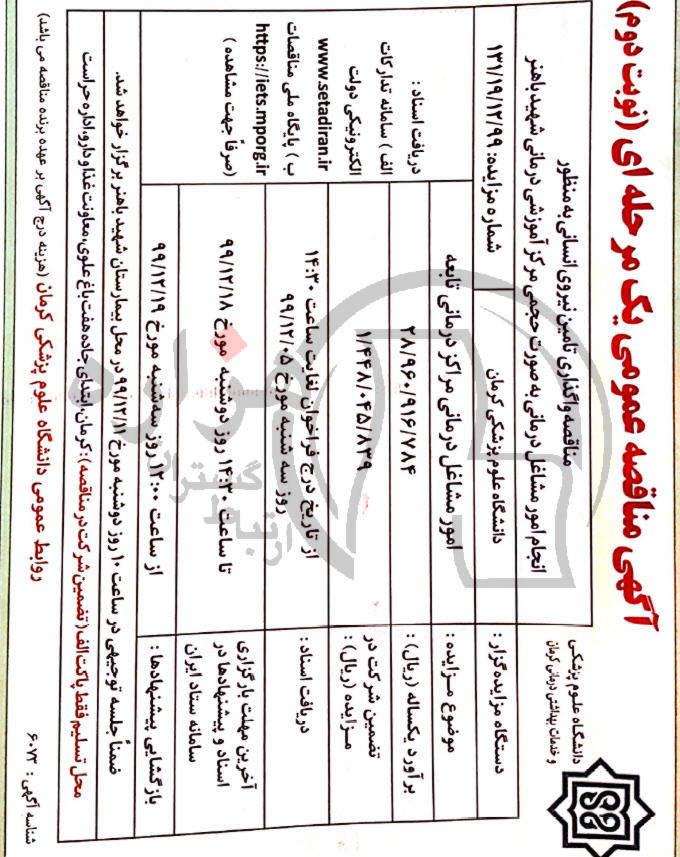 آگهی مناقصه عمومی یک مرحله ای (نوبت دوم)
دانشگاه علوم پزشکی
و خدمات بهداشتی درمانی کرمان
مناقصه واگذاری تامین نیروی انسانی به منظور
انجام امور مشاغل درمانی به صورت حجمی مرکز آموزشی درمانی شهید باهنر
دستگاه مزایده‌گزار :
دانشگاه علوم پزشکی کرمان
شماره مزایده: ۱۳۱/۱۹/۱۲/۹۹
موضوع مزایده :
امور مشاغل درمانی مراکز درمانی تابعه
برآورد یکساله (ریال) :
۲۸/۹۶۰/۹۱۶/۷۸۴
تضمین شرکت در
مزایده (ریال) :
۱/۴۴۸/۰۴۵/۸۳۹
دریافت اسناد :
از تاریخ درج فراخوان لغایت ساعت ۱۴:۳۰
روز سه شنبه مورخ ۹۹/۱۲/۰۵
آخرین مهلت بارگزاری
اسناد و پیشنهادها در
سامانه ستاد ایران
تا ساعت ۱۴:۳۰ روز دوشنبه مورخ ۹۹/۱۲/۱۸
بازگشایی پیشنهادها :
از ساعت ۱۲:۰۰ روز سه‌شنبه مورخ ۹۹/۱۲/۱۹
دریافت اسناد :
الف ) سامانه تدارکات
الکترونیکی دولت
www.setadiran.ir
ب ) پایگاه ملی مناقصات
https://iets.mporg.ir
(صرفاً جهت مشاهده )
ضمناً جلسه توجیهی در ساعت ۱۰ روز دوشنبه مورخ ۹۹/۱۲/۱۱ در محل بیمارستان شهید باهنر برگزار خواهد شد.
محل تسلیم فقط پاکت الف (تضمین شرکت در مناقصه) : کرمان، ابتدای جاده هفت باغ علوی، معاونت غذا و دارو، اداره حراست
شناسه آگهی : ۶۰۷۳
روابط عمومی دانشگاه علوم پزشکی کرمان (هزینه درج آگهی بر عهده برنده مناقصه می باشد)